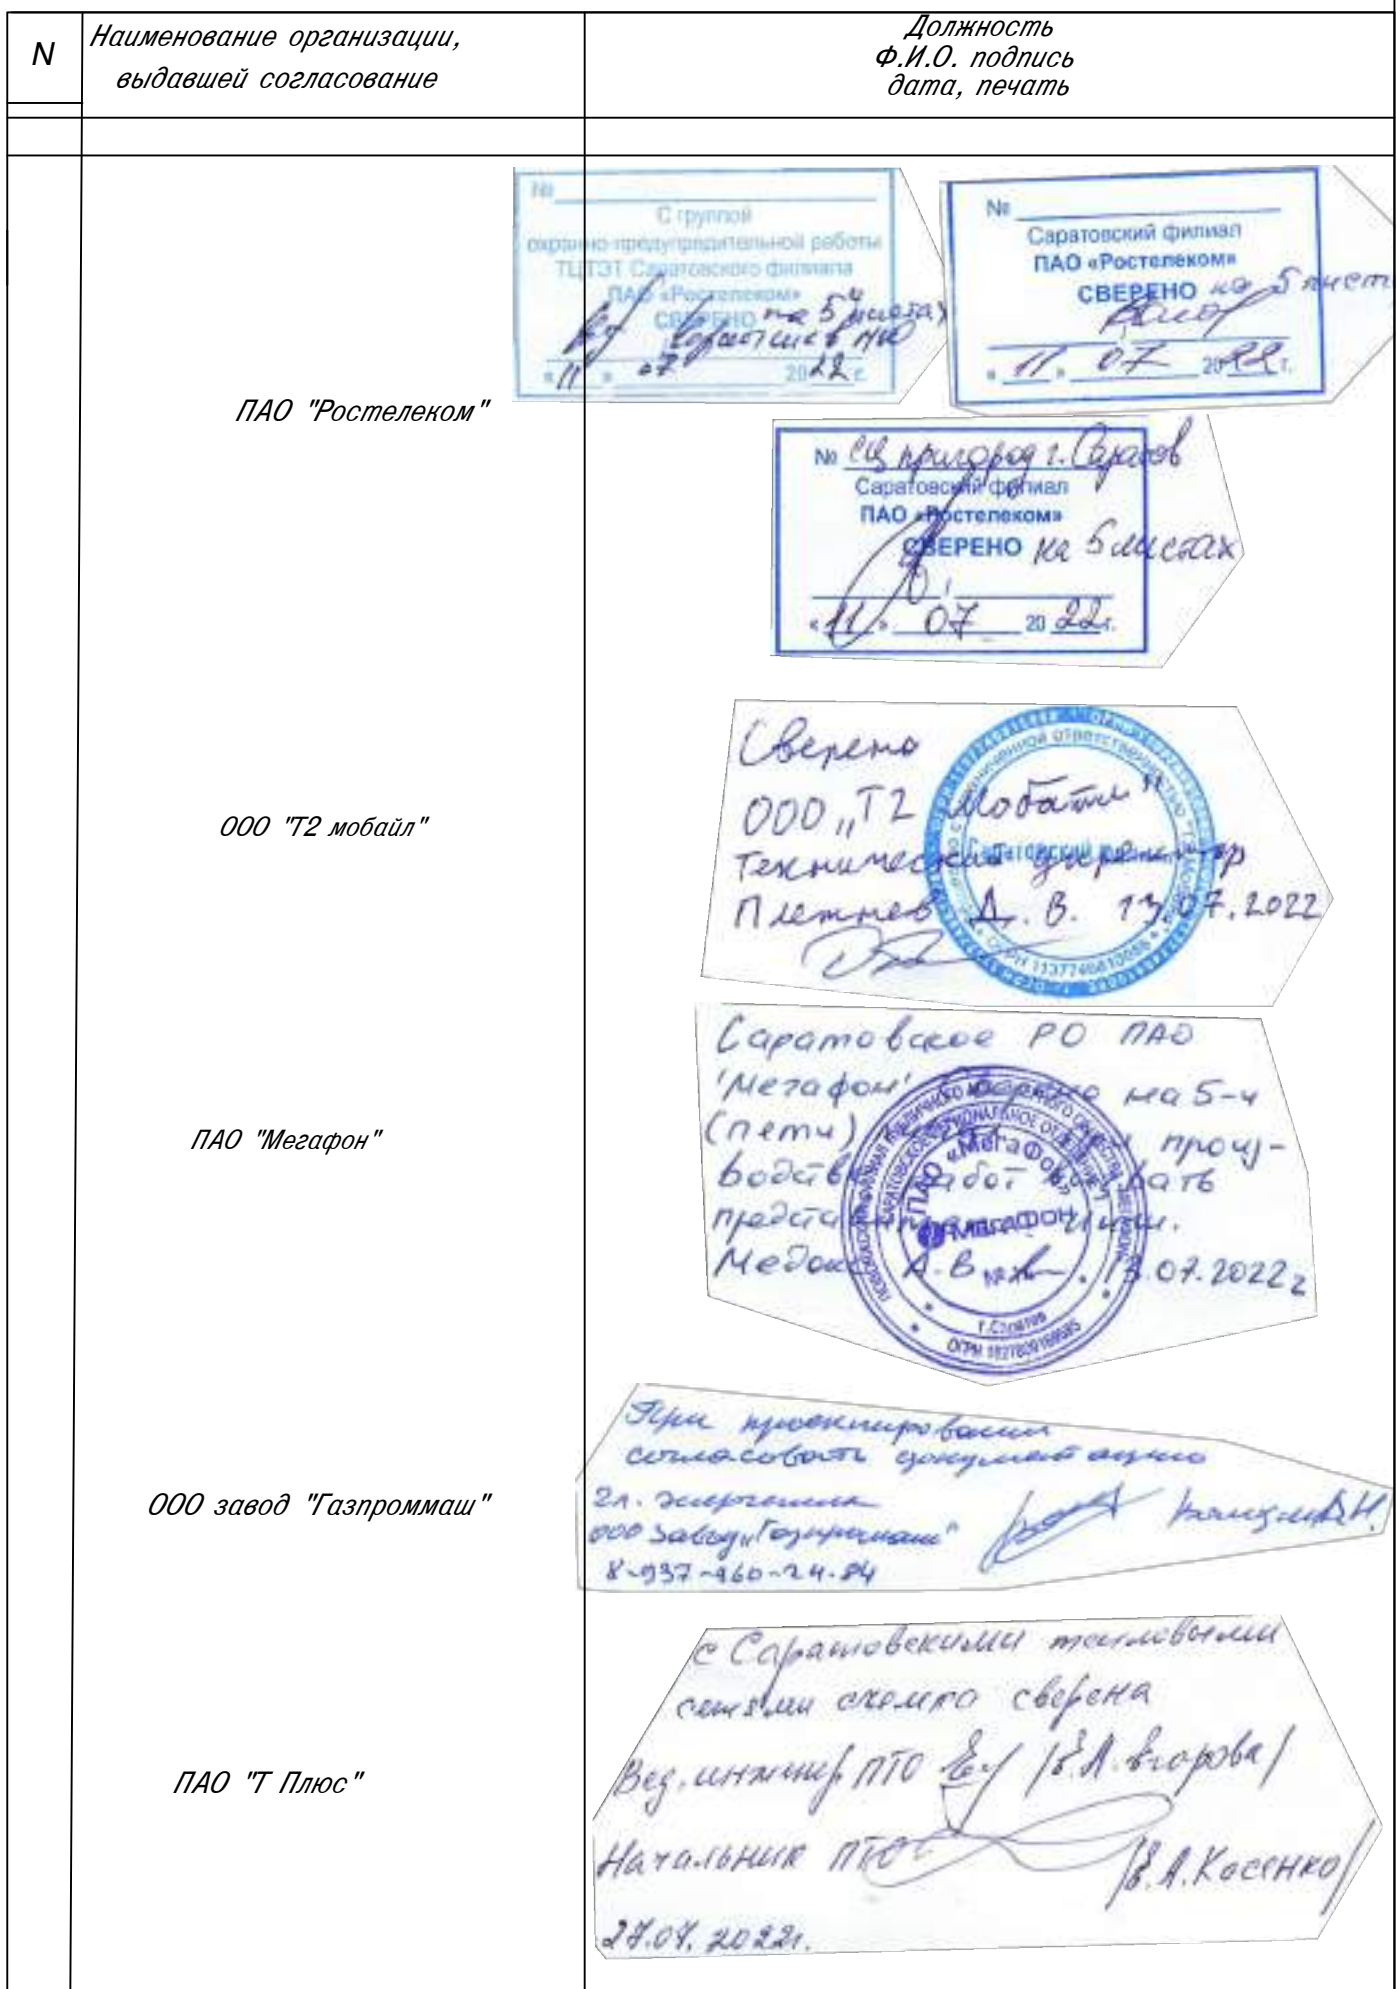 N
Наименование организации,
выдавшей согласование
Должность
Ф.И.О. подпись
дата, печать
ПАО "Ростелеком"
№
С группой
охранно-предупредительной работы
ТЦТЭТ Саратовского филиала
ПАО «Ростелеком»
СВЕРЕНО на 5 листах
« 11 » 07 2022 г.
№
Саратовский филиал
ПАО «Ростелеком»
СВЕРЕНО на 5 лист
« 11 » 07 2022 г.
№ СЦ пригород г. Саратов
Саратовский филиал
ПАО «Ростелеком»
СВЕРЕНО на 5 листах
« 11 » 07 2022 г.
ООО "Т2 мобайл"
Сверено
ООО „Т2 Мобайл"
Технический директор
Плетнев Д. В. 13.07.2022
Саратовский филиал
ПАО "Мегафон"
Саратовское РО ПАО
'Мегафон' Сверено на 5-и
(пети) при произ-
водстве работ вызвать
представителя
А.В. 13.07.2022г
ПАО «МегаФон»
МЕГАФОН
г.Саратов
ООО завод "Газпроммаш"
При проектировании
согласовать документацию
Гл. энергетик
ООО Завод „Газпроммаш"
8-937-960-24-84
ПАО "Т Плюс"
с Саратовскими тепловыми
сетями схема сверена
Вед. инженер ПТО /Е.А. Егорова/
Начальник ПТО /Е.А. Косенко/
27.07.2022г.